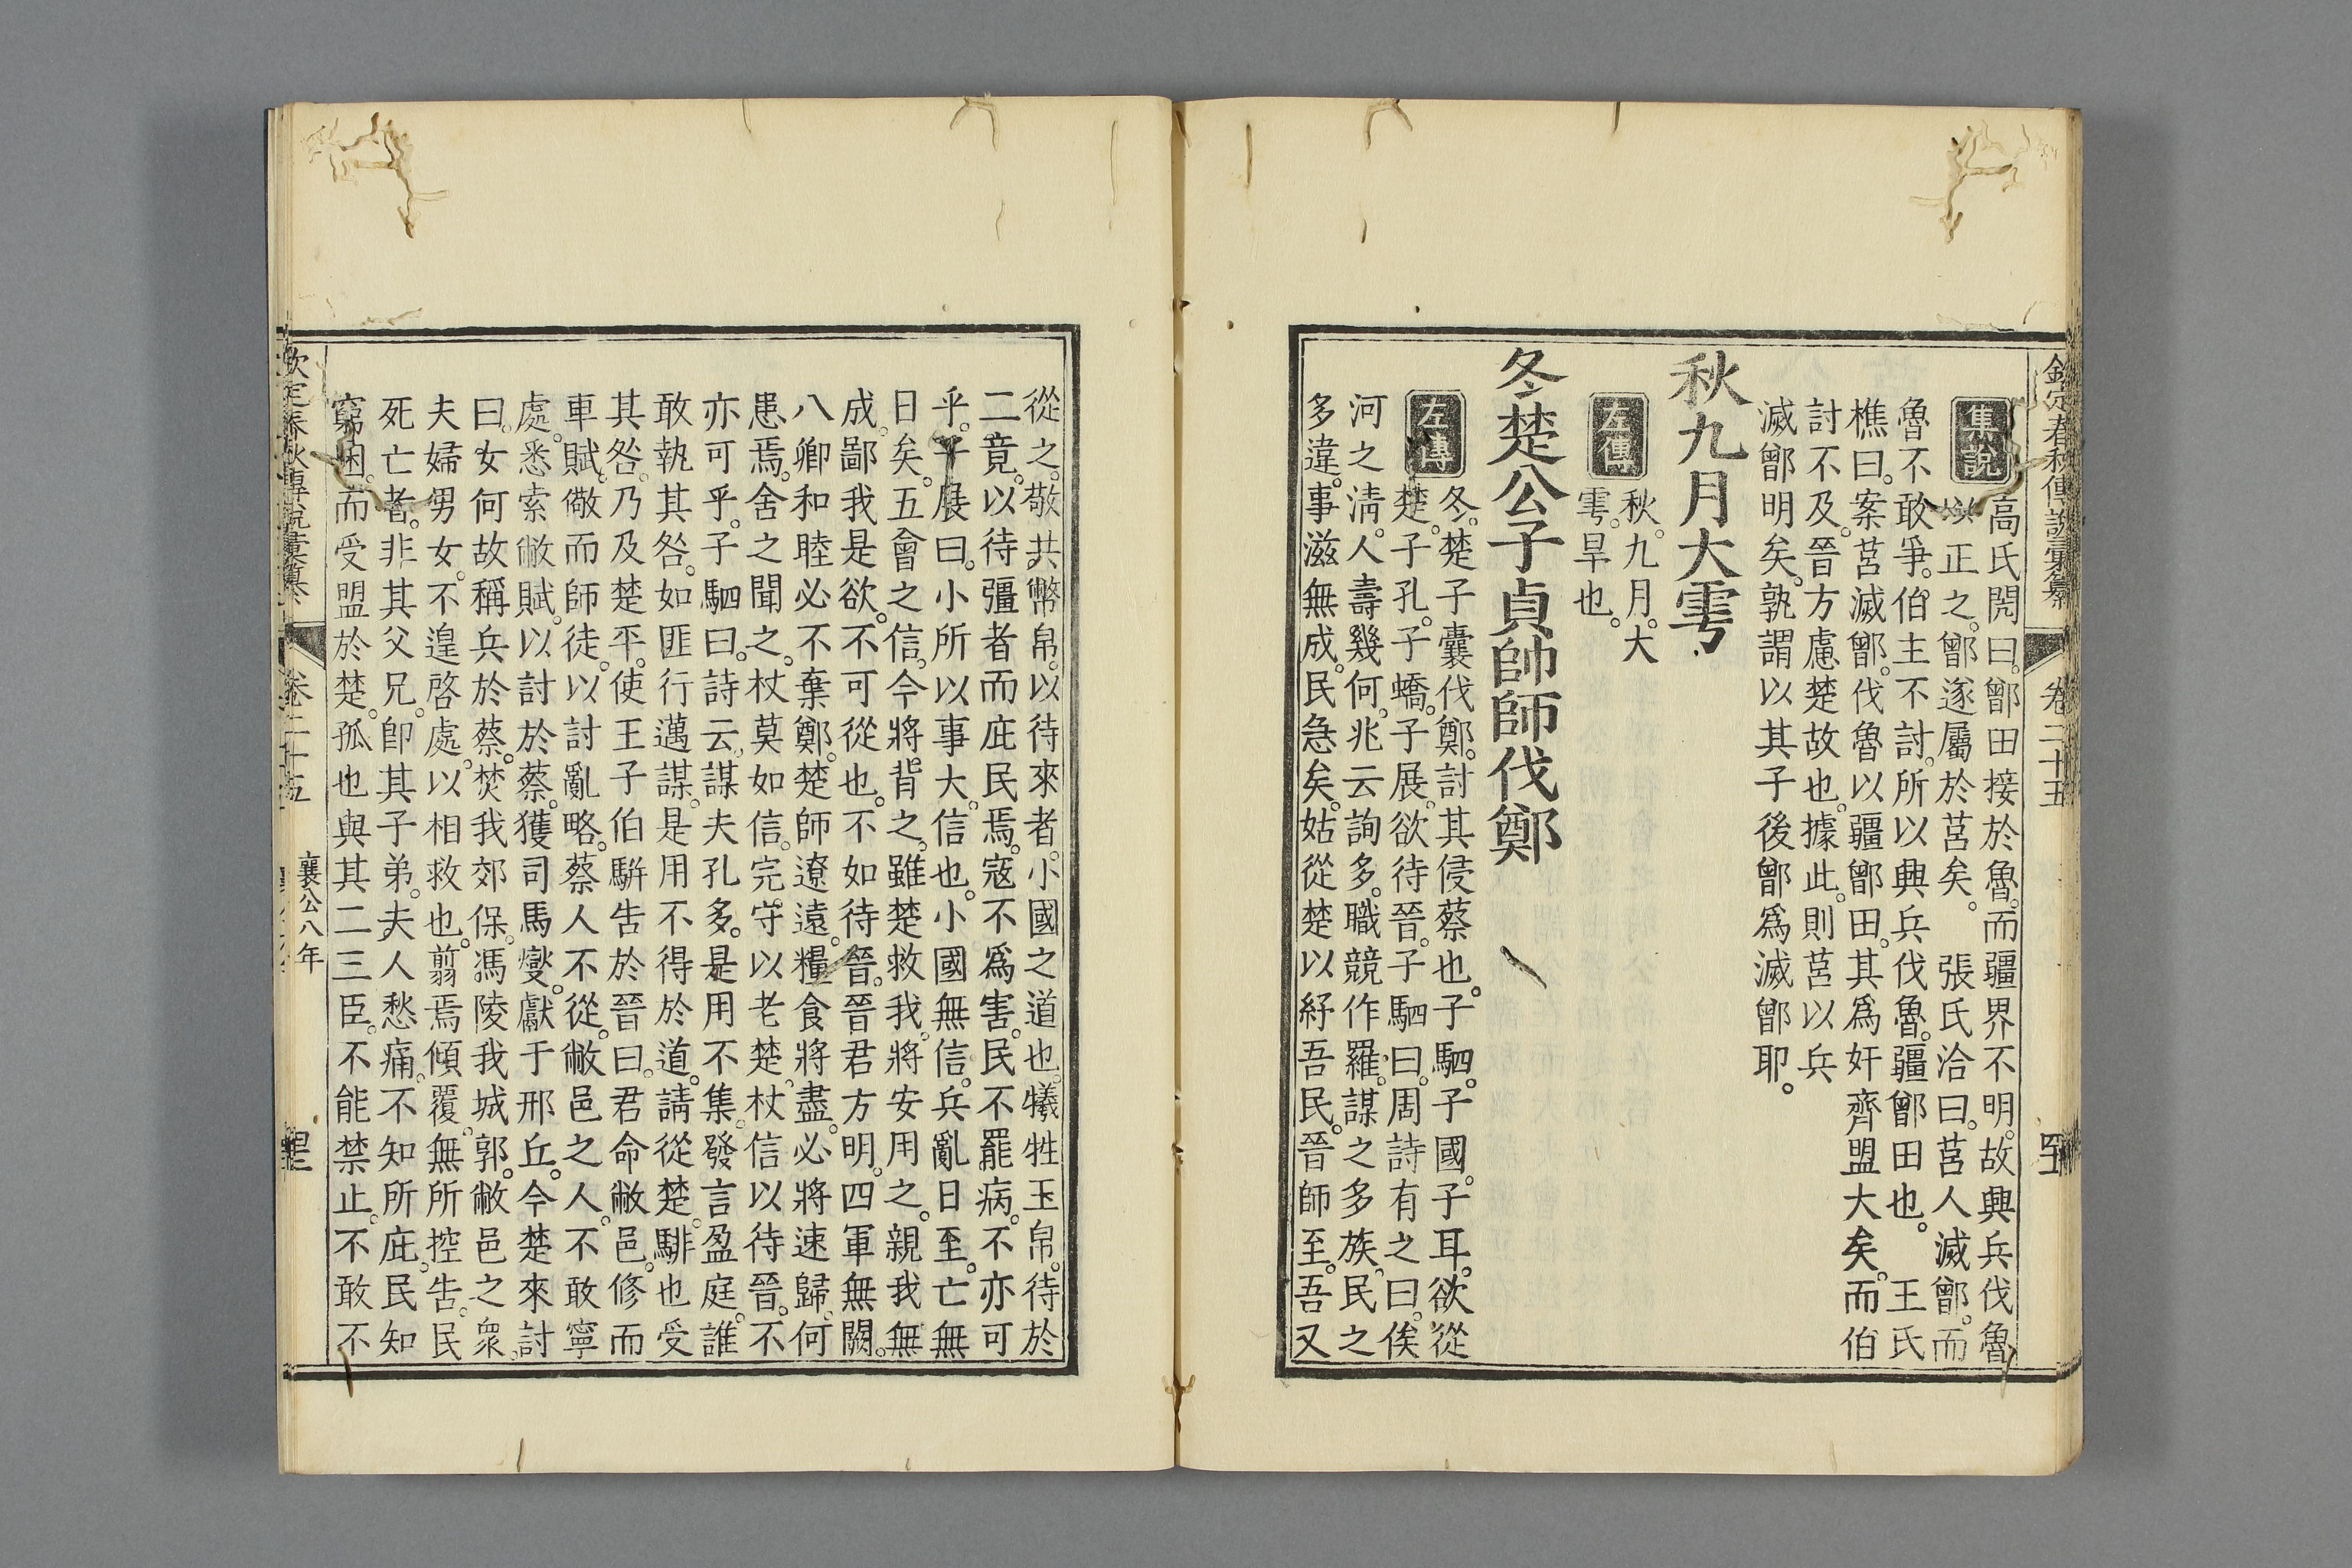 欽定春秋傳說彙纂 卷二十五
集說 高氏閌曰。鄫田接於魯。而疆界不明。故興兵伐魯
以正之。鄫遂屬於莒矣。 張氏洽曰。莒人滅鄫。而
魯不敢爭。伯主不討。所以興兵伐魯。疆鄫田也。 王氏
樵曰。案莒滅鄫。伐魯以疆鄫田。其爲奸齊盟大矣。而伯
討不及。晉方慮楚故也。據此。則莒以兵
滅鄫明矣。孰謂以其子後鄫爲滅鄫耶。
秋九月大雩
左傳 秋。九月。大
雩。旱也。
冬楚公子貞帥師伐鄭
左傳 冬。楚子囊伐鄭。討其侵蔡也。子駟。子國。子耳。欲從
楚。子孔。子蟜。子展。欲待晉。子駟曰。周詩有之曰。俟
河之淸。人壽幾何。兆云詢多。職競作羅。謀之多族。民之
多違。事滋無成。民急矣。姑從楚以紓吾民。晉師至。吾又
從之。敬共幣帛。以待來者。小國之道也。犧牲玉帛。待於
二竟。以待彊者而庇民焉。寇不爲害。民不罷病。不亦可
乎。子展曰。小所以事大。信也。小國無信。兵亂日至。亡無
日矣。五會之信。今將背之。雖楚救我。將安用之。親我無
成。鄙我是欲。不可從也。不如待晉。晉君方明。四軍無闕。
八卿和睦。必不棄鄭。楚師遼遠。糧食將盡。必將速歸。何
患焉。舍之聞之。杖莫如信。完守以老楚。杖信以待晉。不
亦可乎。子駟曰。詩云。謀夫孔多。是用不集。發言盈庭。誰
敢執其咎。如匪行邁謀。是用不得於道。請從楚。騑也受
其咎。乃及楚平。使王子伯騈告於晉曰。君命敝邑。修而
車賦。儆而師徒。以討亂略。蔡人不從。敝邑之人。不敢寧
處。悉索敝賦。以討於蔡。獲司馬燮。獻于邢丘。今楚來討
曰。女何故稱兵於蔡。焚我郊保。馮陵我城郭。敝邑之衆。
夫婦男女。不遑啓處。以相救也。翦焉傾覆。無所控告。民
死亡者。非其父兄。卽其子弟。夫人愁痛。不知所庇。民知
窮困。而受盟於楚。孤也與其二三臣。不能禁止。不敢不
欽定春秋傳說彙纂 卷二十五 襄公八年